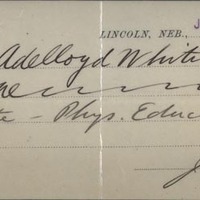 J
LINCOLN, NEB.,
Adelloyd White
te - Phys. Educ
J